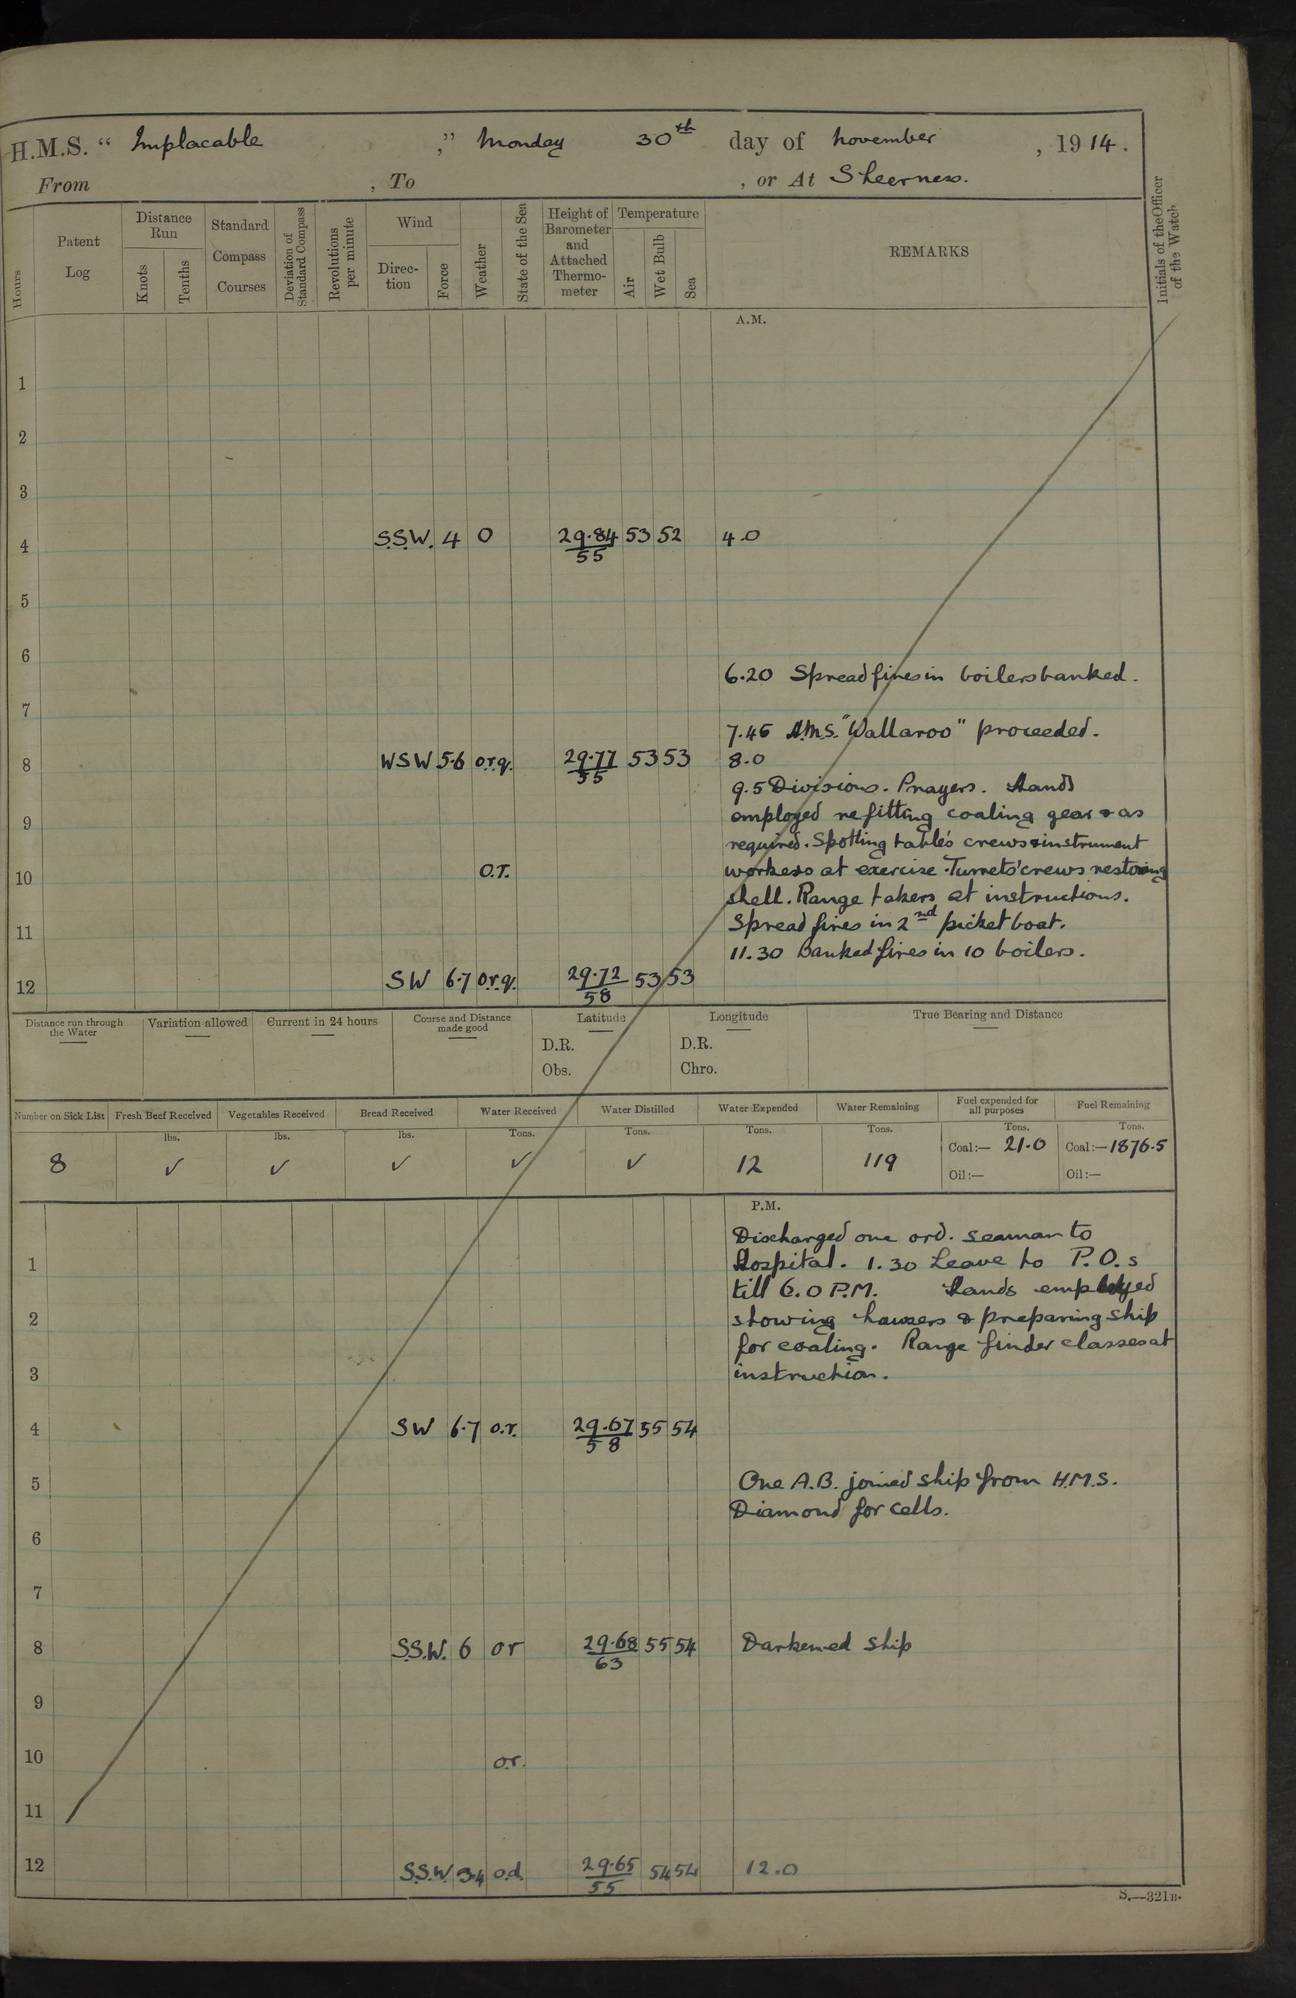 H.M.S. “ Implacable ,” Monday 30th day of November , 1914.
From , To , or At Sheerness.
Hours
Patent Log
Distance Run
Knots
Tenths
Standard Compass Courses
Deviation of Standard Compass
Revolutions per minute
Wind
Direc-tion
Force
Weather
State of the Sea
Height of Barometer and Attached Thermo-meter
Temperature
Air
Wet Bulb
Sea
REMARKS
Initials of the Officer of the Watch
A.M.
1
2
3
4 S.S.W. 4 o 29.84/55 53 52 4.0
5
6
6.20 Spread fires in boilers banked.
7
7.45 H.M.S. "Wallaroo" proceeded.
8 WSW 5.6 o.r.q. 29.77/55 53 53 8.0
9.5 Divisions. Prayers. Hands
employed refitting coaling gear & as
9
required. Spotting table's crews & instrument
10 o.r. workers at exercise. Turrets' crews restowing
shell. Range takers at instructions.
11 Spread fires in 2nd picket boat.
11.30 Banked fires in 10 boilers.
12 SW 6.7 o.r.q. 29.72/58 53 53
Distance run through the Water
Variation allowed
Current in 24 hours
Course and Distance made good
Latitude
D.R.
Obs.
Longitude
D.R.
Chro.
True Bearing and Distance
Number on Sick List
Fresh Beef Received
Vegetables Received
Bread Received
Water Received
Water Distilled
Water Expended
Water Remaining
Fuel expended for all purposes
Fuel Remaining
lbs. lbs. lbs. Tons. Tons. Tons. Tons. Tons. Tons.
8 ✓ ✓ ✓ ✓ ✓ 12 119 Coal:— 21.0 Coal:— 1876.5
Oil:— Oil:—
P.M.
Discharged one ord. seaman to
1 Hospital. 1.30 Leave to P.O.s
till 6.0 P.M. Hands employed
2 stowing hawsers & preparing ship
for coaling. Range finder classes at
3 instruction.
4 SW 6.7 o.r. 29.67/58 55 54
5 One A.B. joined ship from H.M.S.
Diamond for cells.
6
7
8 S.S.W. 6 or 29.68/63 55 54 Darkened ship
9
10 o.r.
11
12 S.S.W. 3.4 o.d. 29.65/55 54 54 12.0
S.—321B.